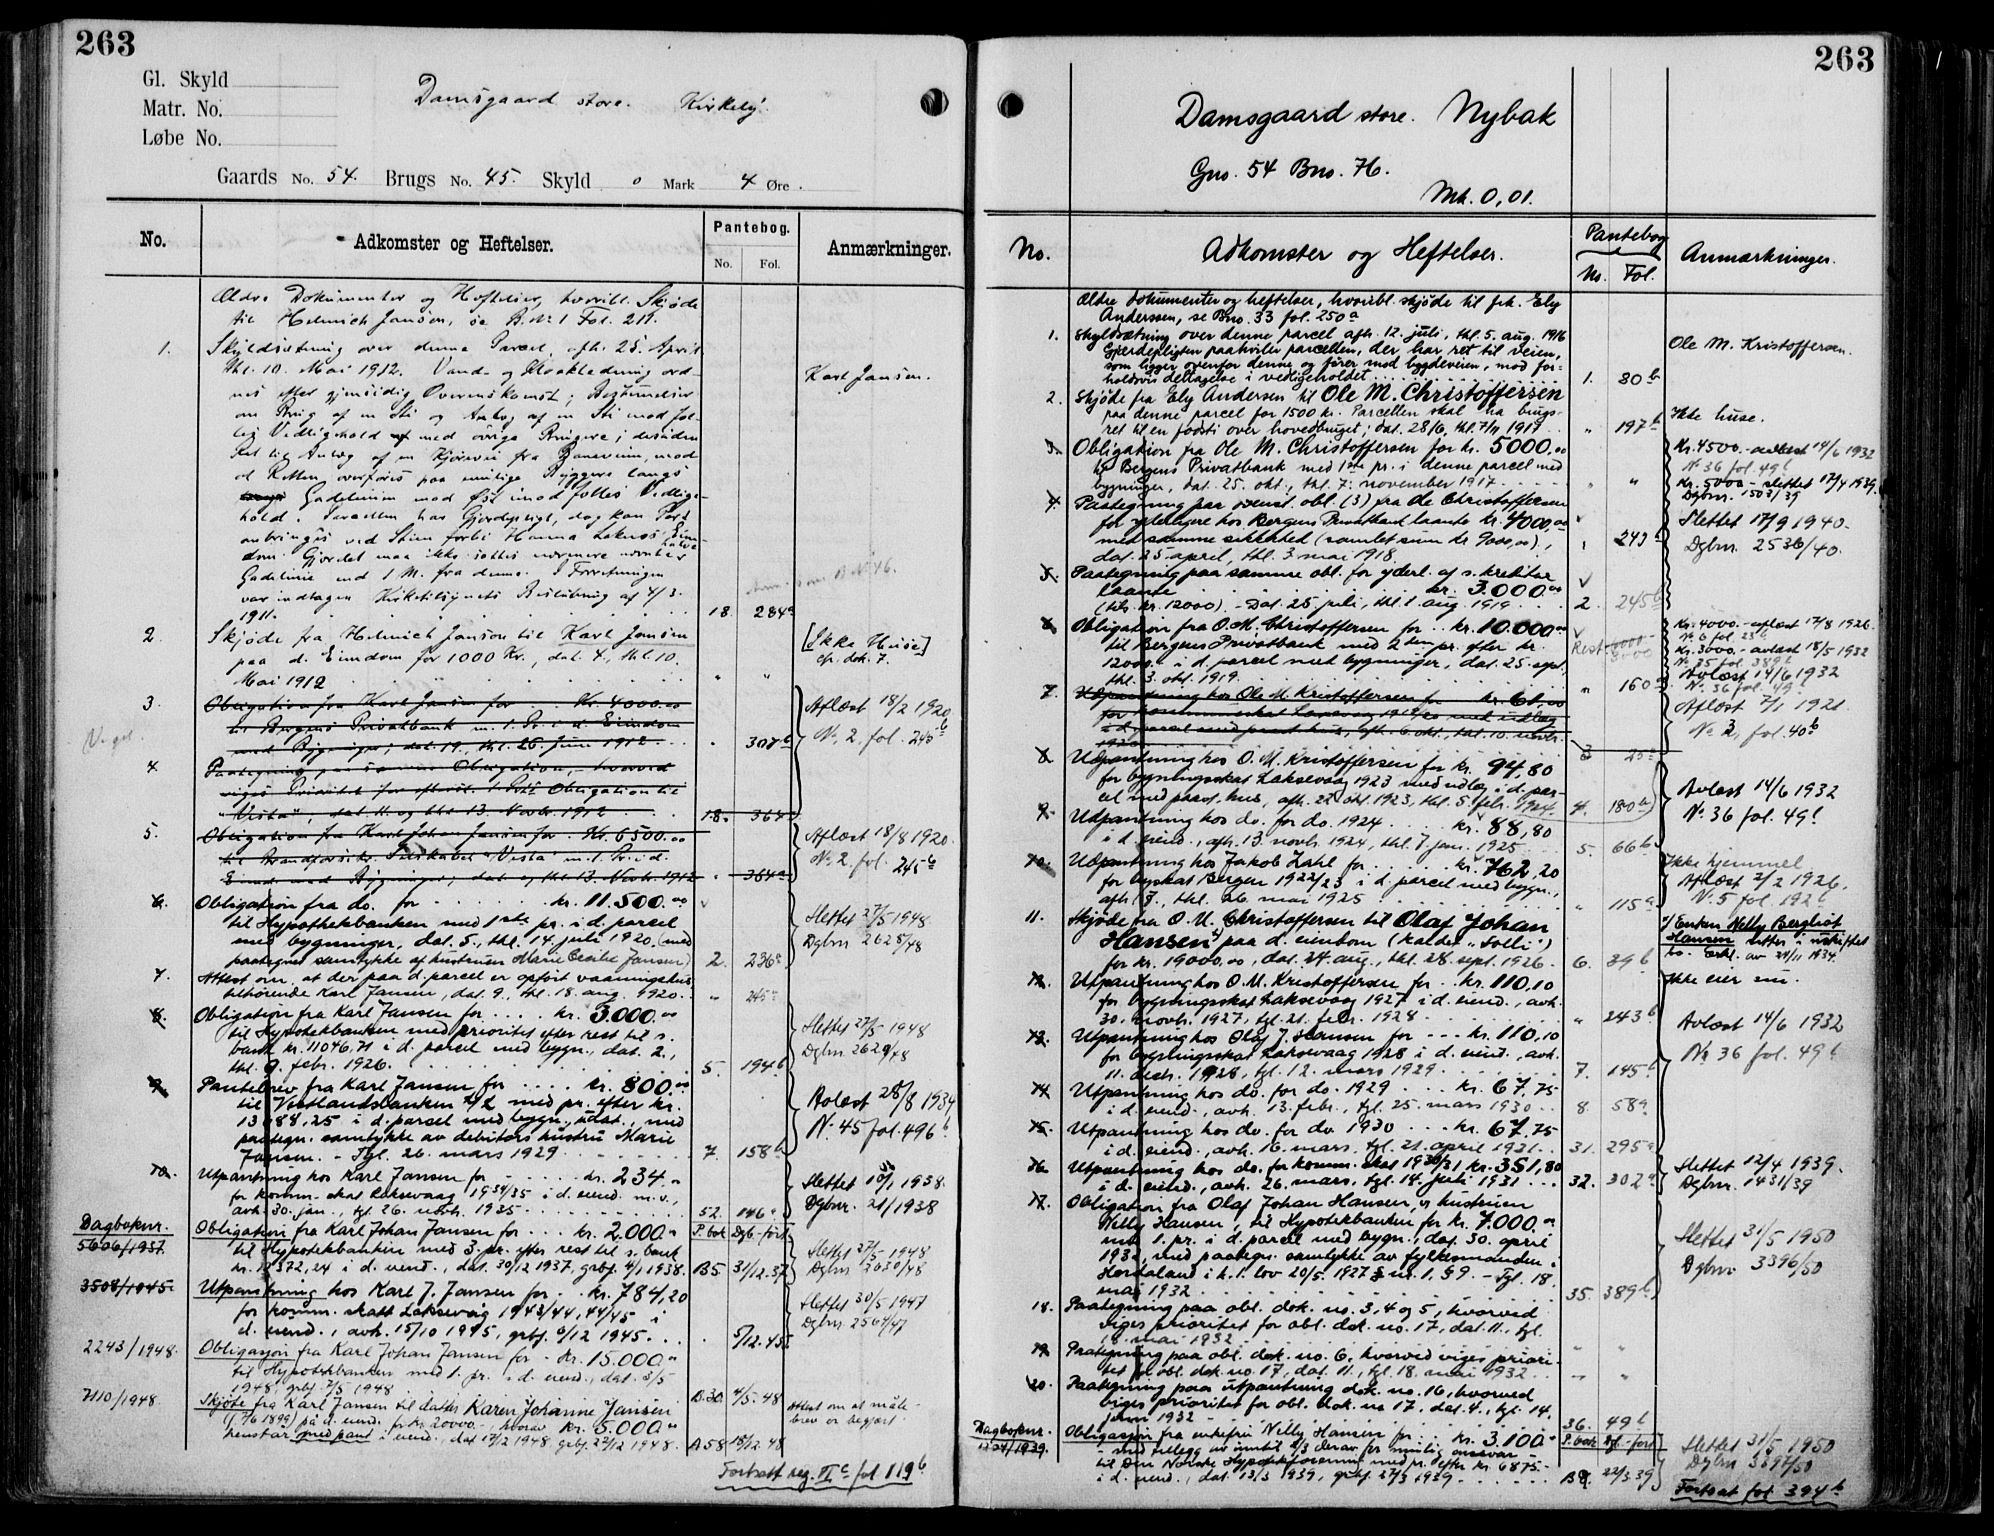 263
Gl. Skyld
Matr. No.
Løbe No.
Damsgaard store. Kirkeby.
Gaards No. 54. Brugs No. 45. Skyld 0 Mark 4 Øre.
No. Adkomster og Heftelser. Pantebog. No. Fol. Anmærkninger.
Ældre Dokumenter og Heftelser, hvoribl. Skjøde
til Helmich Jansen, se B. No 1 Fol. 211.
1. Skyldsætning over denne Parcel, afh. 25. April
thl. 10. Mai 1912. Vand- og Kloakledning ord- Karl Jansen.
nes efter gjensidig Overenskomst; Bestemmelser
om Brug af en Sti og Anlæg af en Sti mod fæl-
les Vedligehold med øvrige Brugere; desuden
Ret til Anlæg af en Kjørevei fra
Retten overføres paa
Gadelinien mod Øst imod fælles Vedlige-
hold. Parcellen har Gjerdepligt, dog kan Port
anbringes ved Stien forbi Hanna
dom. Gjerdet maa ikke sættes nærmere
Gadelinie end 1 M. fra denne. I Forretningen
var indtagen Kirketilsynets Beslutning af 4/3.
1911. 18. 284a
2. Skjøde fra Helmich Jansen til Karl Jansen [Ikke Huse]
paa d. Eiendom for 1000 Kr., dat. 4., thl. 10. cfr. dok. 7.
Mai 1912 " "
3. Obligation fra Karl Jansen for Kr. 4000.00 Aflæst 18/2 1920
til Bergens Privatbank m. 1. Pr. i d. Eiendom No. 2. fol. 245b
med Bygninger, dat. 19., thl. 26. Juni 1912 " 307b
4 Paategning paa samme Obligation, hvorved
viges Prioritet for efterst. 1. Pr. Obligation til
"Vesta", dat. 11. og thl. 13. Novbr. 1912 18. 364
5. Obligation fra Karl Johan Jansen for Kr. 6500.00 Aflæst 18/8 1920.
til Brandforsikr. Selskabet "Vesta" m. 1. Pr. i d. No. 2. fol. 245b
Eiend. med Bygninger, dat. og thl. 13. Novbr. 1912 " 364a
6. Obligation fra do. for kr. 11.500.00
til Hypothekbanken med 1ste pr. i d. parcel Slettet 27/5 1948
med bygninger, dat. 5., thl. 14. juli 1920. (med Dgbnr 2628/48
paategnet samtykke af hustruen Marie Cecilie Jansen) 2. 236a
7. Attest om, at der paa d. parcel er opført vaaningshus
tilhørende Karl Jansen, dat. 9., thl. 18. aug. 1920. " 245a
8. Obligation fra Karl Jansen for kr. 3.000.00
til Hypotekbanken med prioritet efter rest til s. Slettet 27/5 1948
bank kr. 11046,71 i d. parcel med bygn., dat. 2., Dgbnr 2629/48
thl. 9. febr. 1926. 5. 194b
9. Pantebrev fra Karl Jansen for kr. 800.00
til Vestlandsbanken A/L med pr. efter kr. Avlæst 28/8 1934
13688,25 i d. parcel med bygn., udat., med No. 45 fol. 496b
paategn. samtykke av debitors hustru Marie
Jansen. - Tgl. 26. mars 1929 7 158b
10. Utpantning hos Karl Jansen for kr. 234.
for komm. skat Laksevaag 1934/35 i d. eiend. m.v., Slettet 10/1 1938.
avh. 30. jan., tgl. 26. novbr. 1935 52. 146a Dgbnr. 21/1938
Dagboknr. Obligation fra Karl Johan Jansen for kr. 2.000. P. bok Dgb.-ført
5606/1937. til Hypotekbanken med 3. pr. efter rest til s. bank Slettet 27/5 1948
kr. 12372,24 i d. eiend., dat. 30/12 1937, grbf. 4/1 1938. B5. 31/12.37 Dgbnr 2630/48
3508/1945. Utpantning hos Karl J. Jansen for kr. 784,20 Slettet 30/5 1947
for komm. skatt Laksevåg 1943/44, 44/45 i Dgbnr 2564/47
d. eiend., avh. 15/10 1945, grbf. 6/12 1945. 5/12.45
2243/1948. Obligasjon fra Karl Johan Jansen for kr. 15.000.
til Hypotekbanken med 1. pr. i d. eiend., dat. 3/5
1948, grbf. 7/5 1948 B.30. 4/5.48
7110/1948 Skjøte fra Karl Jansen til datter Karen Johanne Jansen Attest om at måle-
(f. 7/6 1899) på d. eiend. for kr. 20000.- hvorav kr. 5.000. brev er begjært
henstår med pant i eiend., dat 17/12 1948 grbf. 22/12 1948. A58 18/12 48
Fortsatt reg. IIc fol 119b
263
Damsgaard store. Nybak
Gno. 54 Bno. 76.
Mk. 0,01.
No. Adkomster og Heftelser. Pantebog No. Fol. Anmærkninger.
Ældre dokumenter og heftelser, hvoribl. skjøde til frk. Ely
Anderssen, se Bno. 33 fol. 250a
1. Skyldsætning over denne parcel afh. 12. juli, thl. 5. aug. 1916 Ole M. Kristoffersen.
Gjerdepligten paahviler parcellen, der har ret til veien,
som ligger ovenfor denne og fører mod bygdeveien, mod for-
holdsvis deltagelse i vedligeholdet 1. 80b
2. Skjøde fra Ely Andersen til Ole M. Christoffersen
paa denne parcel for 1500 kr. Parcellen skal ha brugs- Ikke huse.
ret til en fodsti over hovedbruget; dat. 28/6, thl. 7/11 1917 " 197b
3. Obligation fra Ole M. Christoffersen for kr. 5000.00 Kr. 4500.- avlæst 14/6 1932
til Bergens Privatbank med 1ste pr. i denne parcel med No 36 fol. 49b
bygninger, dat. 25. okt., thl. 7. november 1917 " " Kr. 5000.- slettet 17/4 1939.
Dgbnr. 1503/39
4. Paategning paa ovenst. obl. (3) fra Ole Christoffersen
for yderligere hos Bergens Privatbank laante kr. 4000.00 Slettet 17/9 1940.
med samme sikkerhed (samlet sum kr 9000,00), Dgbnr. 2536/40.
dat. 25. april, thl. 3. mai 1918. " 243b
5. Paategning paa samme obl. for yderl. af s. kreditor
laante kr. 3.000.00
(tils. kr. 12000). - Dat. 25. juli, thl. 1. aug. 1919 2. 245b
6. Obligation fra O. M. Christoffersen for kr. 10.000.00 Kr. 4000.- aflæst 17/8 1926.
til Bergens Privatbank med 2den pr. efter kr. No. 6 fol. 23b
12000. i d. parcel med bygninger, dat. 25. sept., Kr. 3000.- avlæst 18/5 1932
thl. 3. okt. 1919. " 160a No 35 fol. 389b
Avlæst 14/6 1932
No. 36 fol. 49b
7. Udpantning hos Ole M. Kristoffersen for kr. 61,00 Aflæst 7/1 1921.
for kommuneskat Laksevaag 1919/20 med udlæg No 3, fol. 40b
i d. parcel med paast. hus, afh. 6. okt., thl. 10. novbr.
1920 3 25a
8. Udpantning hos O. M. Kristoffersen for kr. 94,80
for bygningsskat Laksevaag 1923 med udlæg i d. par- Avlæst 14/6 1932
cel med paast. hus, afh. 22. okt. 1923, thl. 5. febr. 1924. 4. 180b No. 36 fol. 49b
9. Udpantning hos do. for do. 1924 kr. 88,80
i d. eiend., afh. 13. novbr. 1924, thl. 7. jan. 1925 5. 66b
10. Udpantning hos Jakob Zahl for kr. 762,20 Ikke hjemmel
for byskat Bergen 1922/23 i d. parcel med bygn., Aflæst 2/2 1926.
afh. 7., thl. 26. mai 1925 " 115a No. 5 fol. 192b
11. Skjøde fra O. M. Christoffersen til Olaf Johan Enken Nelly Bergliot
Hansen paa d. eiendom (kaldet "Solli") Hansen sitter i uskiftet
for kr. 19000,00, dat. 24. aug., thl. 28. sept. 1926. 6. 39b bo. Erkl. av 29/11 1934
12. Utpantning hos O. M. Kristoffersen for kr. 110,10 Ikke eier nu.
for bygningsskat Laksevaag 1927 i d. eiend., avh.
30. novbr. 1927, tgl. 21. febr. 1928 " 243b Avlæst 14/6 1932
13. Utpantning hos Olaf J. Hansen for kr. 110,10 No 36 fol. 49b
for bygningsskat Laksevaag 1928 i d. eiend., avh.
11. desbr. 1928, tgl. 12. mars 1929 7. 145b
14. Utpantning hos do. for do. 1929 kr. 67,75
i d. eiend., avh. 13. febr., tgl. 25. mars 1930 8. 58a
15. Utpantning hos do. for do. 1930 kr. 67,75
i d. eiend., avh. 16. mars, tgl. 21. april 1931 31. 295a
16. Utpantning hos do. for komm. skat 1930/31 kr. 351,80 Slettet 12/4 1939.
i d. eiend., avh. 26. mars, tgl. 14. juli 1931 32. 302a Dgbnr. 1431/39
17. Obligation fra Olaf Johan Hansen og hustruen
Nelly Hansen, til Hypotekbanken for kr. 7.000.00 Slettet 31/5 1950
med 1. pr. i d. parcel med bygn., dat. 30. april Dgbnr 3396/50
1932, med paategn. samtykke av fylkesmanden i
Hordaland i h. t. lov 20/5. 1927 nr. 1, § 9. - Tgl. 18.
mai 1932 35. 389b
18. Paategning paa obl. dok. no. 3, 4 og 5, hvorved
viges prioritet for obl. dok. no. 17, dat. 11., tgl.
18. mai 1932 " "
19. Paategning paa obl. dok. no. 6, hvorved viges priori-
tet for obl. dok. no 17, dat. 11., tgl. 18. mai 1932 " "
20. Paategning paa utpantning dok. no. 16, hvorved
viges prioritet for obl. dok. no 17, dat. 4., tgl. 14.
juni 1932 36. 49b
Dagboknr. Obligasjon fra enkefru Nelly Hansen for kr. 3.100. P. bok Dgb.-ført
1204/1939. - med tillegg av inntil 1/3 derav for mulig ansvar - Slettet 31/5 1950
til Den Norske Hypotekforening med pr. efter kr. 6875.- Dgbnr 3397/50
i d. eiend., dat. 13/3 1939, grbf. 27/3 1939 B9. 22/3.39
Fortsat fol. 394b